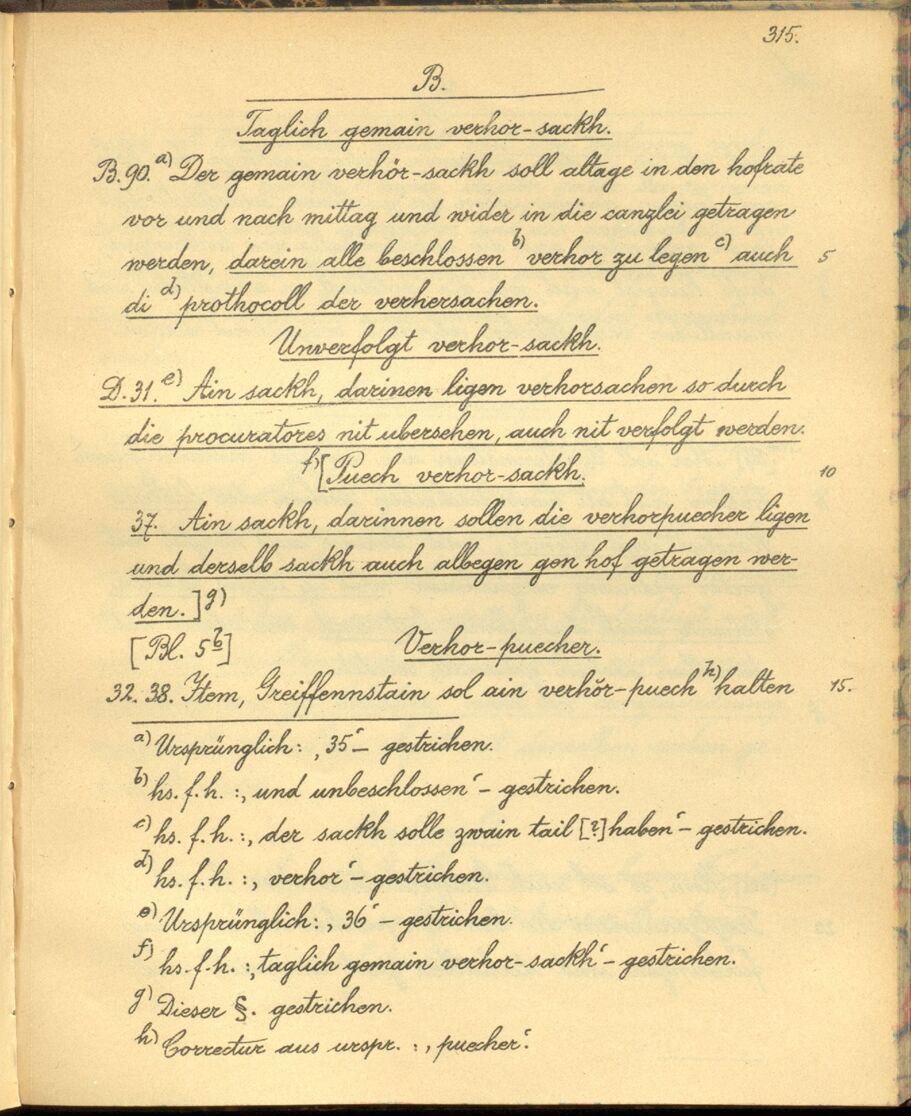 315.
B.
Taglich gemain verhor-sackh.
B.90.a) Der gemain verhör-sackh soll altage in den hofrate
vor und nach mittag und wider in die canzlei getragen
werden, darein alle beschlossen b) verhor zu legen c) auch 5
di d) prothocoll der verhersachen.
Unverfolgt verhor-sackh.
D.31.e) Ain sackh, darinen ligen verhorsachen so durch
die procuratores nit ubersehen, auch nit verfolgt werden.
f)[Puech verhor-sackh. 10
37. Ain sackh, darinnen sollen die verhorpuecher ligen
und derselb sackh auch albegen gen hof getragen wer-
den.]g)
[Bl. 5b] Verhor-puecher.
32. 38. Item, Greiffennstain sol ain verhör-puech h) halten 15.
a) Ursprünglich: ‚35‘ - gestrichen.
b) hs. f. h. : ‚und unbeschlossen‘ - gestrichen.
c) hs. f. h. : ‚der sackh solle zwain tail [?] haben‘ - gestrichen.
d) hs. f. h. : ‚verhor‘ - gestrichen.
e) Ursprünglich: ‚36‘ - gestrichen.
f) hs. f. h. : ‚taglich gemain verhor-sackh‘ - gestrichen.
g) Dieser §. gestrichen.
h) Correctur aus urspr. : ‚puecher‘.